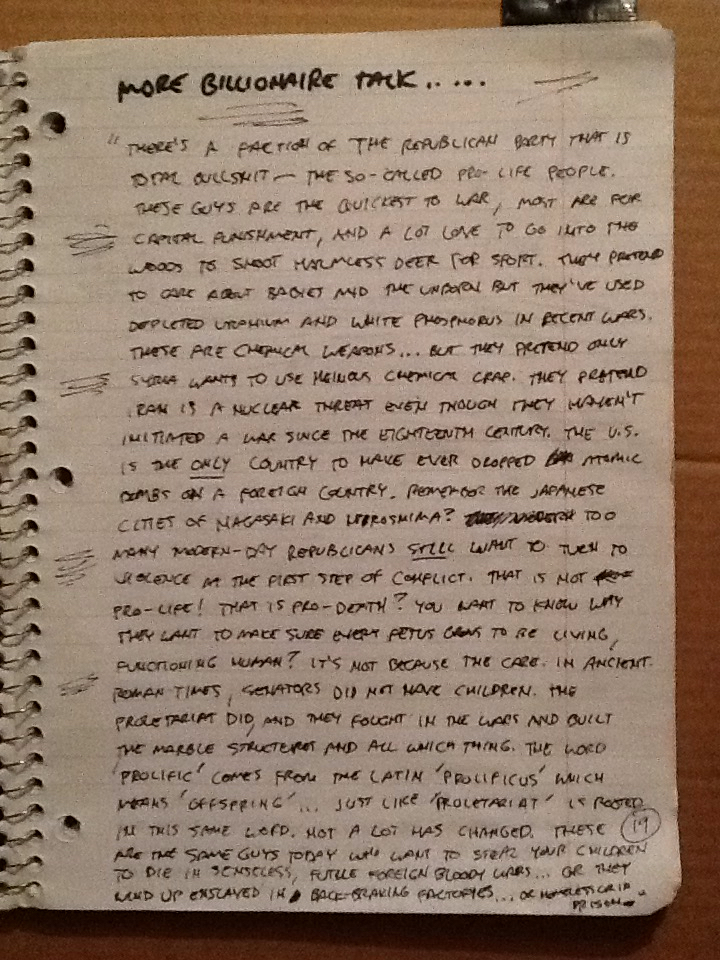 MORE BILLIONAIRE TALK.....
"THERE'S A FACTION OF THE REPUBLICAN PARTY THAT IS
TOTAL BULLSHIT — THE SO-CALLED PRO-LIFE PEOPLE.
THESE GUYS ARE THE QUICKEST TO WAR, MOST ARE FOR
CAPITAL PUNISHMENT, AND A LOT LOVE TO GO INTO THE
WOODS TO SHOOT HARMLESS DEER FOR SPORT. THEY PRETEND
TO CARE ABOUT BABIES AND THE UNBORN BUT THEY'VE USED
DEPLETED URANIUM AND WHITE PHOSPHORUS IN RECENT WARS.
THESE ARE CHEMICAL WEAPONS... BUT THEY PRETEND ONLY
SYRIA WANTS TO USE HEINOUS CHEMICAL CRAP. THEY PRETEND
IRAN IS A NUCLEAR THREAT EVEN THOUGH THEY HAVEN'T
INITIATED A WAR SINCE THE EIGHTEENTH CENTURY. THE U.S.
IS THE ONLY COUNTRY TO HAVE EVER DROPPED ATOMIC
BOMBS ON A FOREIGN COUNTRY. REMEMBER THE JAPANESE
CITIES OF NAGASAKI AND HIROSHIMA? TOO
MANY MODERN-DAY REPUBLICANS STILL WANT TO TURN TO
VIOLENCE AT THE FIRST STEP OF CONFLICT. THAT IS NOT
PRO-LIFE! THAT IS PRO-DEATH? YOU WANT TO KNOW WHY
THEY WANT TO MAKE SURE EVERY FETUS GROWS TO BE LIVING,
FUNCTIONING HUMAN? IT'S NOT BECAUSE THE CARE. IN ANCIENT
ROMAN TIMES, SENATORS DID NOT HAVE CHILDREN. THE
PROLETARIAT DID, AND THEY FOUGHT IN THE WARS AND BUILT
THE MARBLE STRUCTURES AND ALL WHICH THING. THE WORD
'PROLIFIC' COMES FROM THE LATIN 'PROLIFICUS' WHICH
MEANS 'OFFSPRING'... JUST LIKE 'PROLETARIAT' IS ROOTED
IN THIS SAME WORD. NOT A LOT HAS CHANGED. THESE
19
ARE THE SAME GUYS TODAY WHO WANT TO STEAL YOUR CHILDREN
TO DIE IN SENSELESS, FUTILE FOREIGN BLOODY WARS... OR THEY
WIND UP ENSLAVED IN BACK-BRAKING FACTORIES... OR HOMELESS OR IN
PRISON.